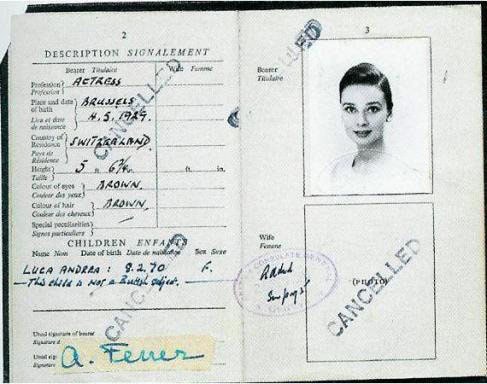 2
DESCRIPTION SIGNALEMENT
Bearer Titulaire Wife Femme
Profession Profession ACTRESS
Place and date of birth BRUSSELS
Lieu et date de naissance 4.5.1929.
Country of Residence SWITZERLAND
Pays de Résidence
Height Taille 5 ft. in.
Colour of eyes BROWN.
Couleur des yeux
Colour of hair BROWN.
Couleur des cheveux
Special peculiarities
Signes particuliers
CHILDREN ENFANTS
Name Nom Date of birth Date de naissance Sex Sexe
LUCA ANDREA : 8.2.70
This child is not a British subject.
Usual signature of bearer
Signature d
Usual sig
Signature
A. Ferrer
CANCELLED
CANCELLED
3
Bearer
Titulaire
Wife
Femme
(PHOTO)
CANCELLED